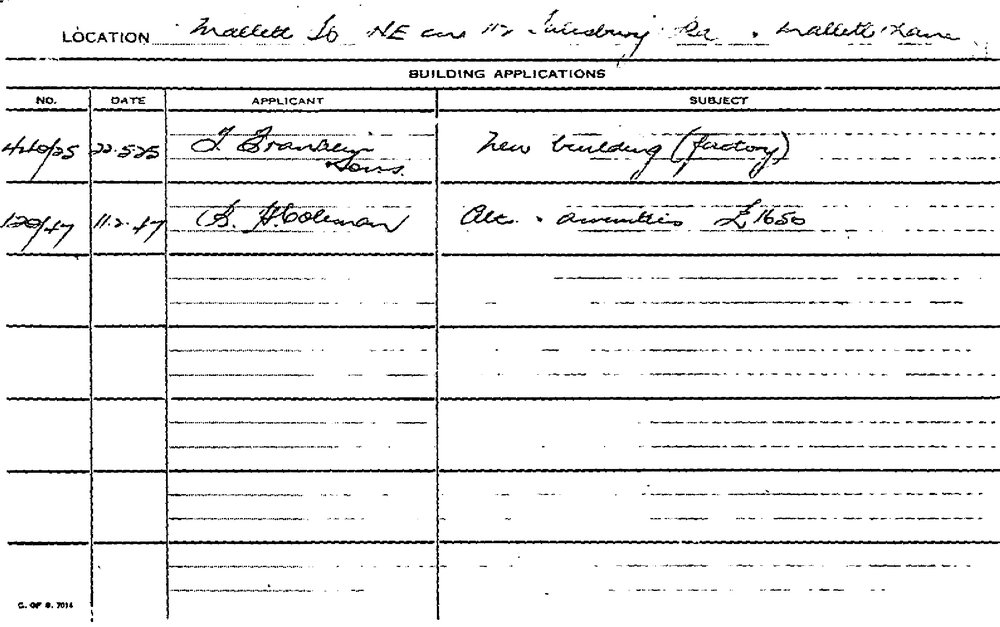 LOCATION Mallett St NE cnr Salisbury Rd . Mallett Lane
BUILDING APPLICATIONS
NO. DATE APPLICANT SUBJECT
/25 22.5.25 New building (factory)
Sons.
120/47 11.2.47 B. H. Coleman Alts . amenities £1650
C. OF S. 7014